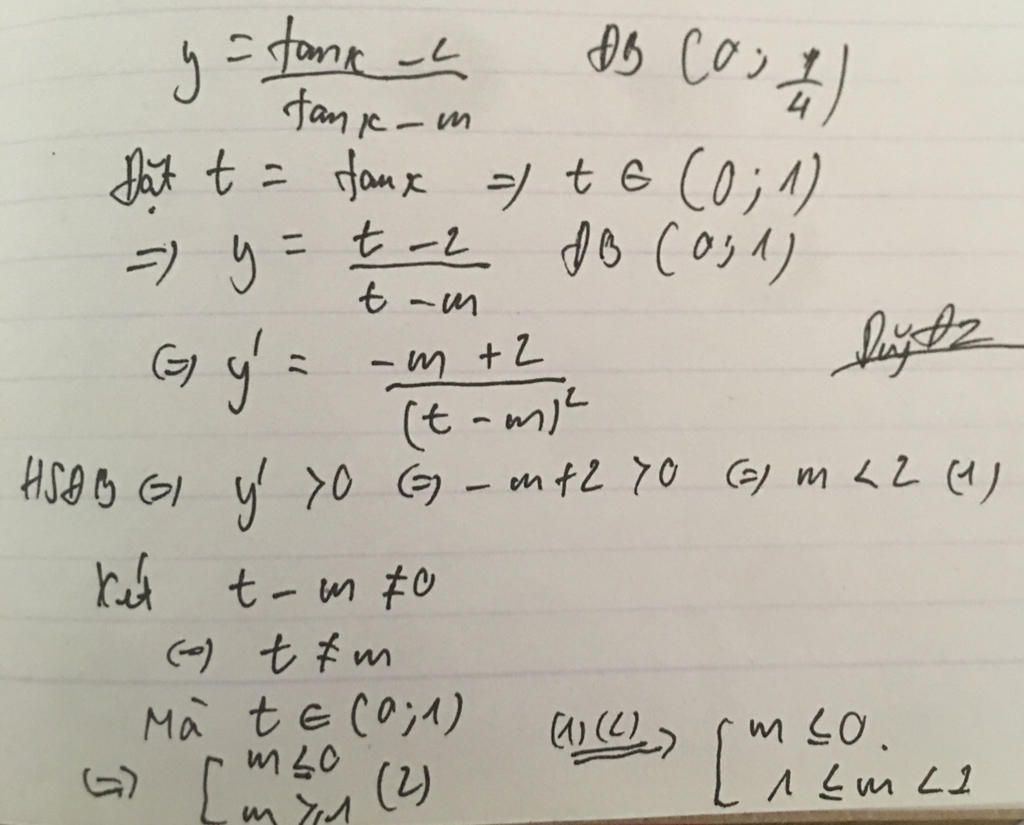 y = (tanx - 2)/(tanx - m) ĐB (0; π/4)
Đặt t = tanx => t ∈ (0;1)
=> y = (t - 2)/(t - m) ĐB (0;1)
<=> y' = (-m + 2)/(t - m)²
Duy Đz
HSĐB <=> y' > 0 <=> -m+2 > 0 <=> m < 2 (1)
Xét t - m ≠ 0
<=> t ≠ m
Mà t ∈ (0;1)
<=> [ m ≤ 0
m ≥ 1 (2)
(1)(2) => [ m ≤ 0.
1 ≤ m < 2